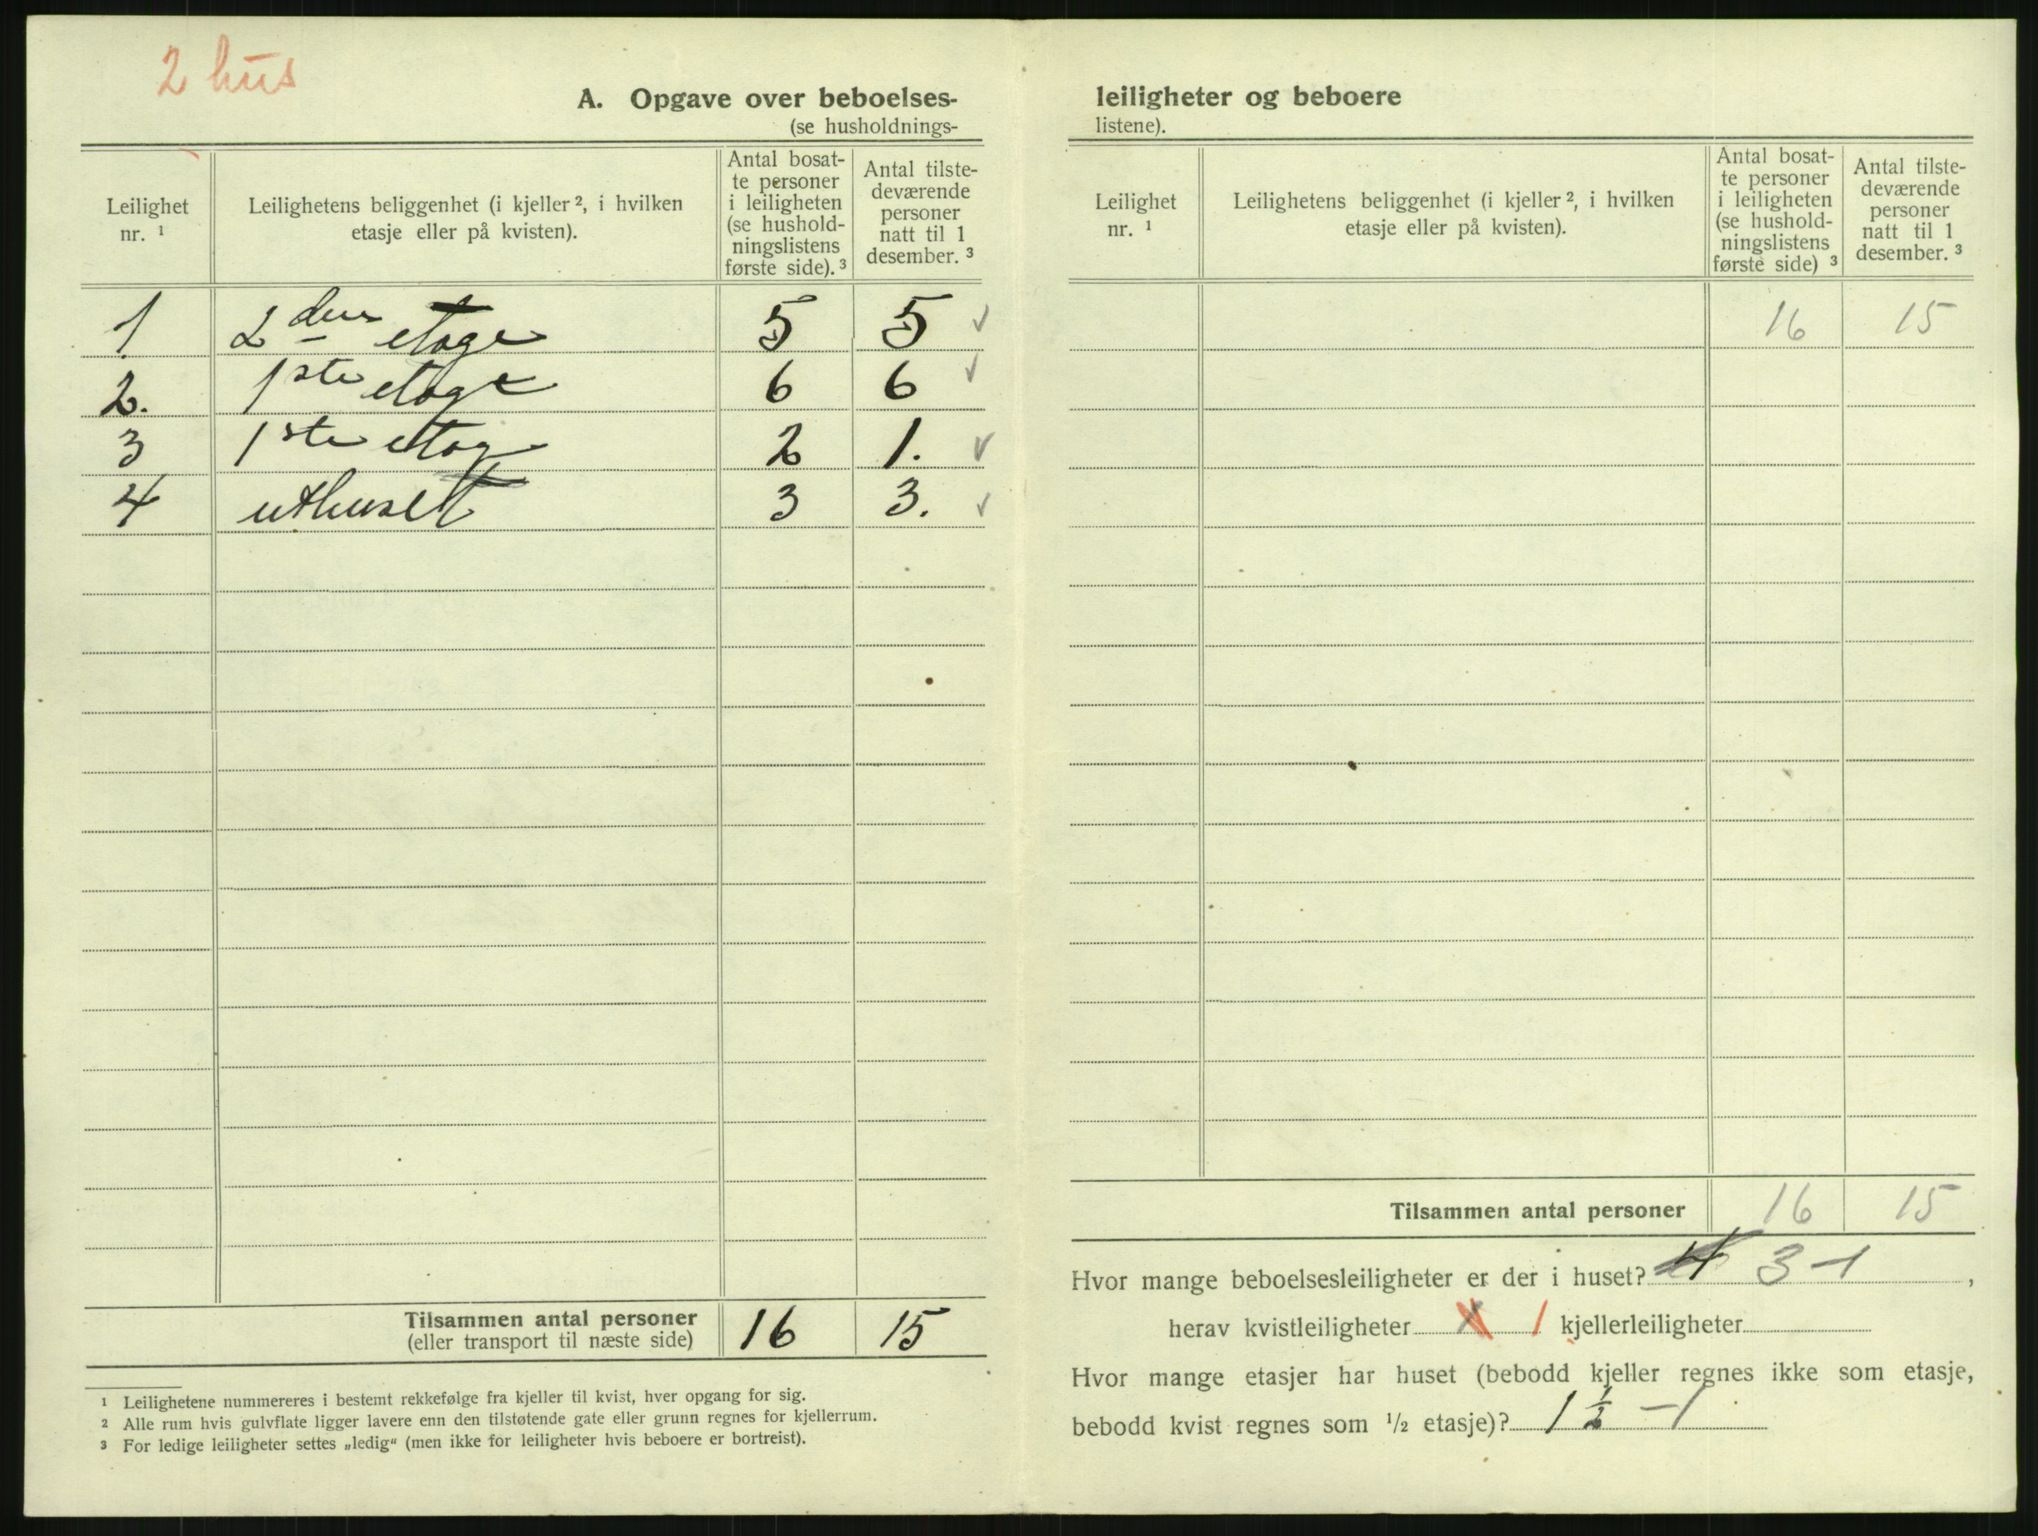 2 hus
A. Opgave over beboelses-
(se husholdnings-
Leilighet nr. ¹
Leilighetens beliggenhet (i kjeller ², i hvilken etasje eller på kvisten).
Antal bosat-
te personer
i leiligheten
(se hushold-
ningslistens
første side). ³
Antal tilste-
deværende
personer
natt til 1
desember. ³
1 2den etage 5 5 ✓
2. 1ste etage 6 6 ✓
3 1ste etag 2 1. ✓
4 uthuset 3 3. ✓
Tilsammen antal personer 16 15
(eller transport til næste side)
¹ Leilighetene nummereres i bestemt rekkefølge fra kjeller til kvist, hver opgang for sig.
² Alle rum hvis gulvflate ligger lavere enn den tilstøtende gate eller grunn regnes for kjellerrum.
³ For ledige leiligheter settes „ledig“ (men ikke for leiligheter hvis beboere er bortreist).
leiligheter og beboere
listene).
Leilighet nr. ¹
Leilighetens beliggenhet (i kjeller ², i hvilken etasje eller på kvisten).
Antal bosat-
te personer
i leiligheten
(se hushold-
ningslistens
første side) ³
Antal tilste-
deværende
personer
natt til 1
desember. ³
16 15
Tilsammen antal personer 16 15
Hvor mange beboelsesleiligheter er der i huset? 4 3-1,
herav kvistleiligheter 1 kjellerleiligheter
Hvor mange etasjer har huset (bebodd kjeller regnes ikke som etasje,
bebodd kvist regnes som ½ etasje)? 1 ½ - 1